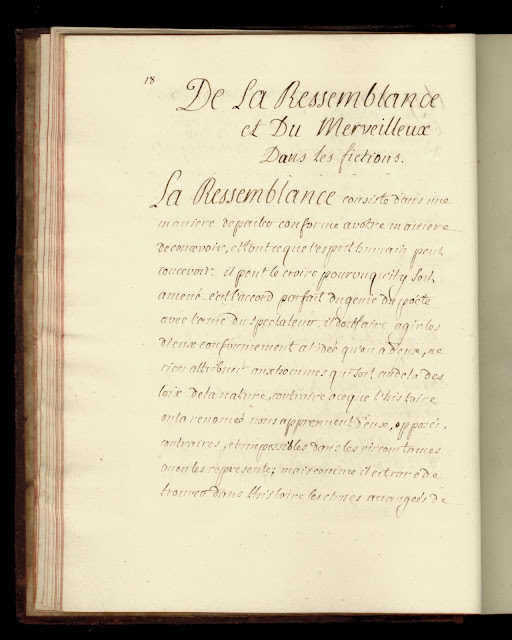 18
De La Ressemblance
et Du Merveilleux
Dans les fictions.
La Ressemblance consiste dans une
maniere de parler conforme a votre maniere
de concevoir, et tout ce que l'esprit humain peut
concevoir. il peut le croire pourvu qu'il y soit
amené. c'est l'accord parfait du genie du poëte
avec l'ame du spectateur. il doit faire agir les
dieux conformement a l'idée qu'on a d'eux, ne
rien attribuer aux hommes qui soit au dela des
loix de la nature, contraire a ce que l'histoire
ou la renomée nous apprennent d'eux, opposés,
contraires, et impossibles dans les circonstances
ou on les represente; mais comme il est rare de
trouver dans l'histoire les choses arrangées de